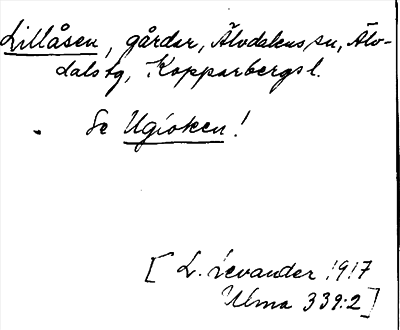 Lillåsen, gårdar, Älvdalens sn, Älv-
dals tg, Kopparbergs l.
Se Ugioken!
[L. Levander 1917
Ulma 339:2]